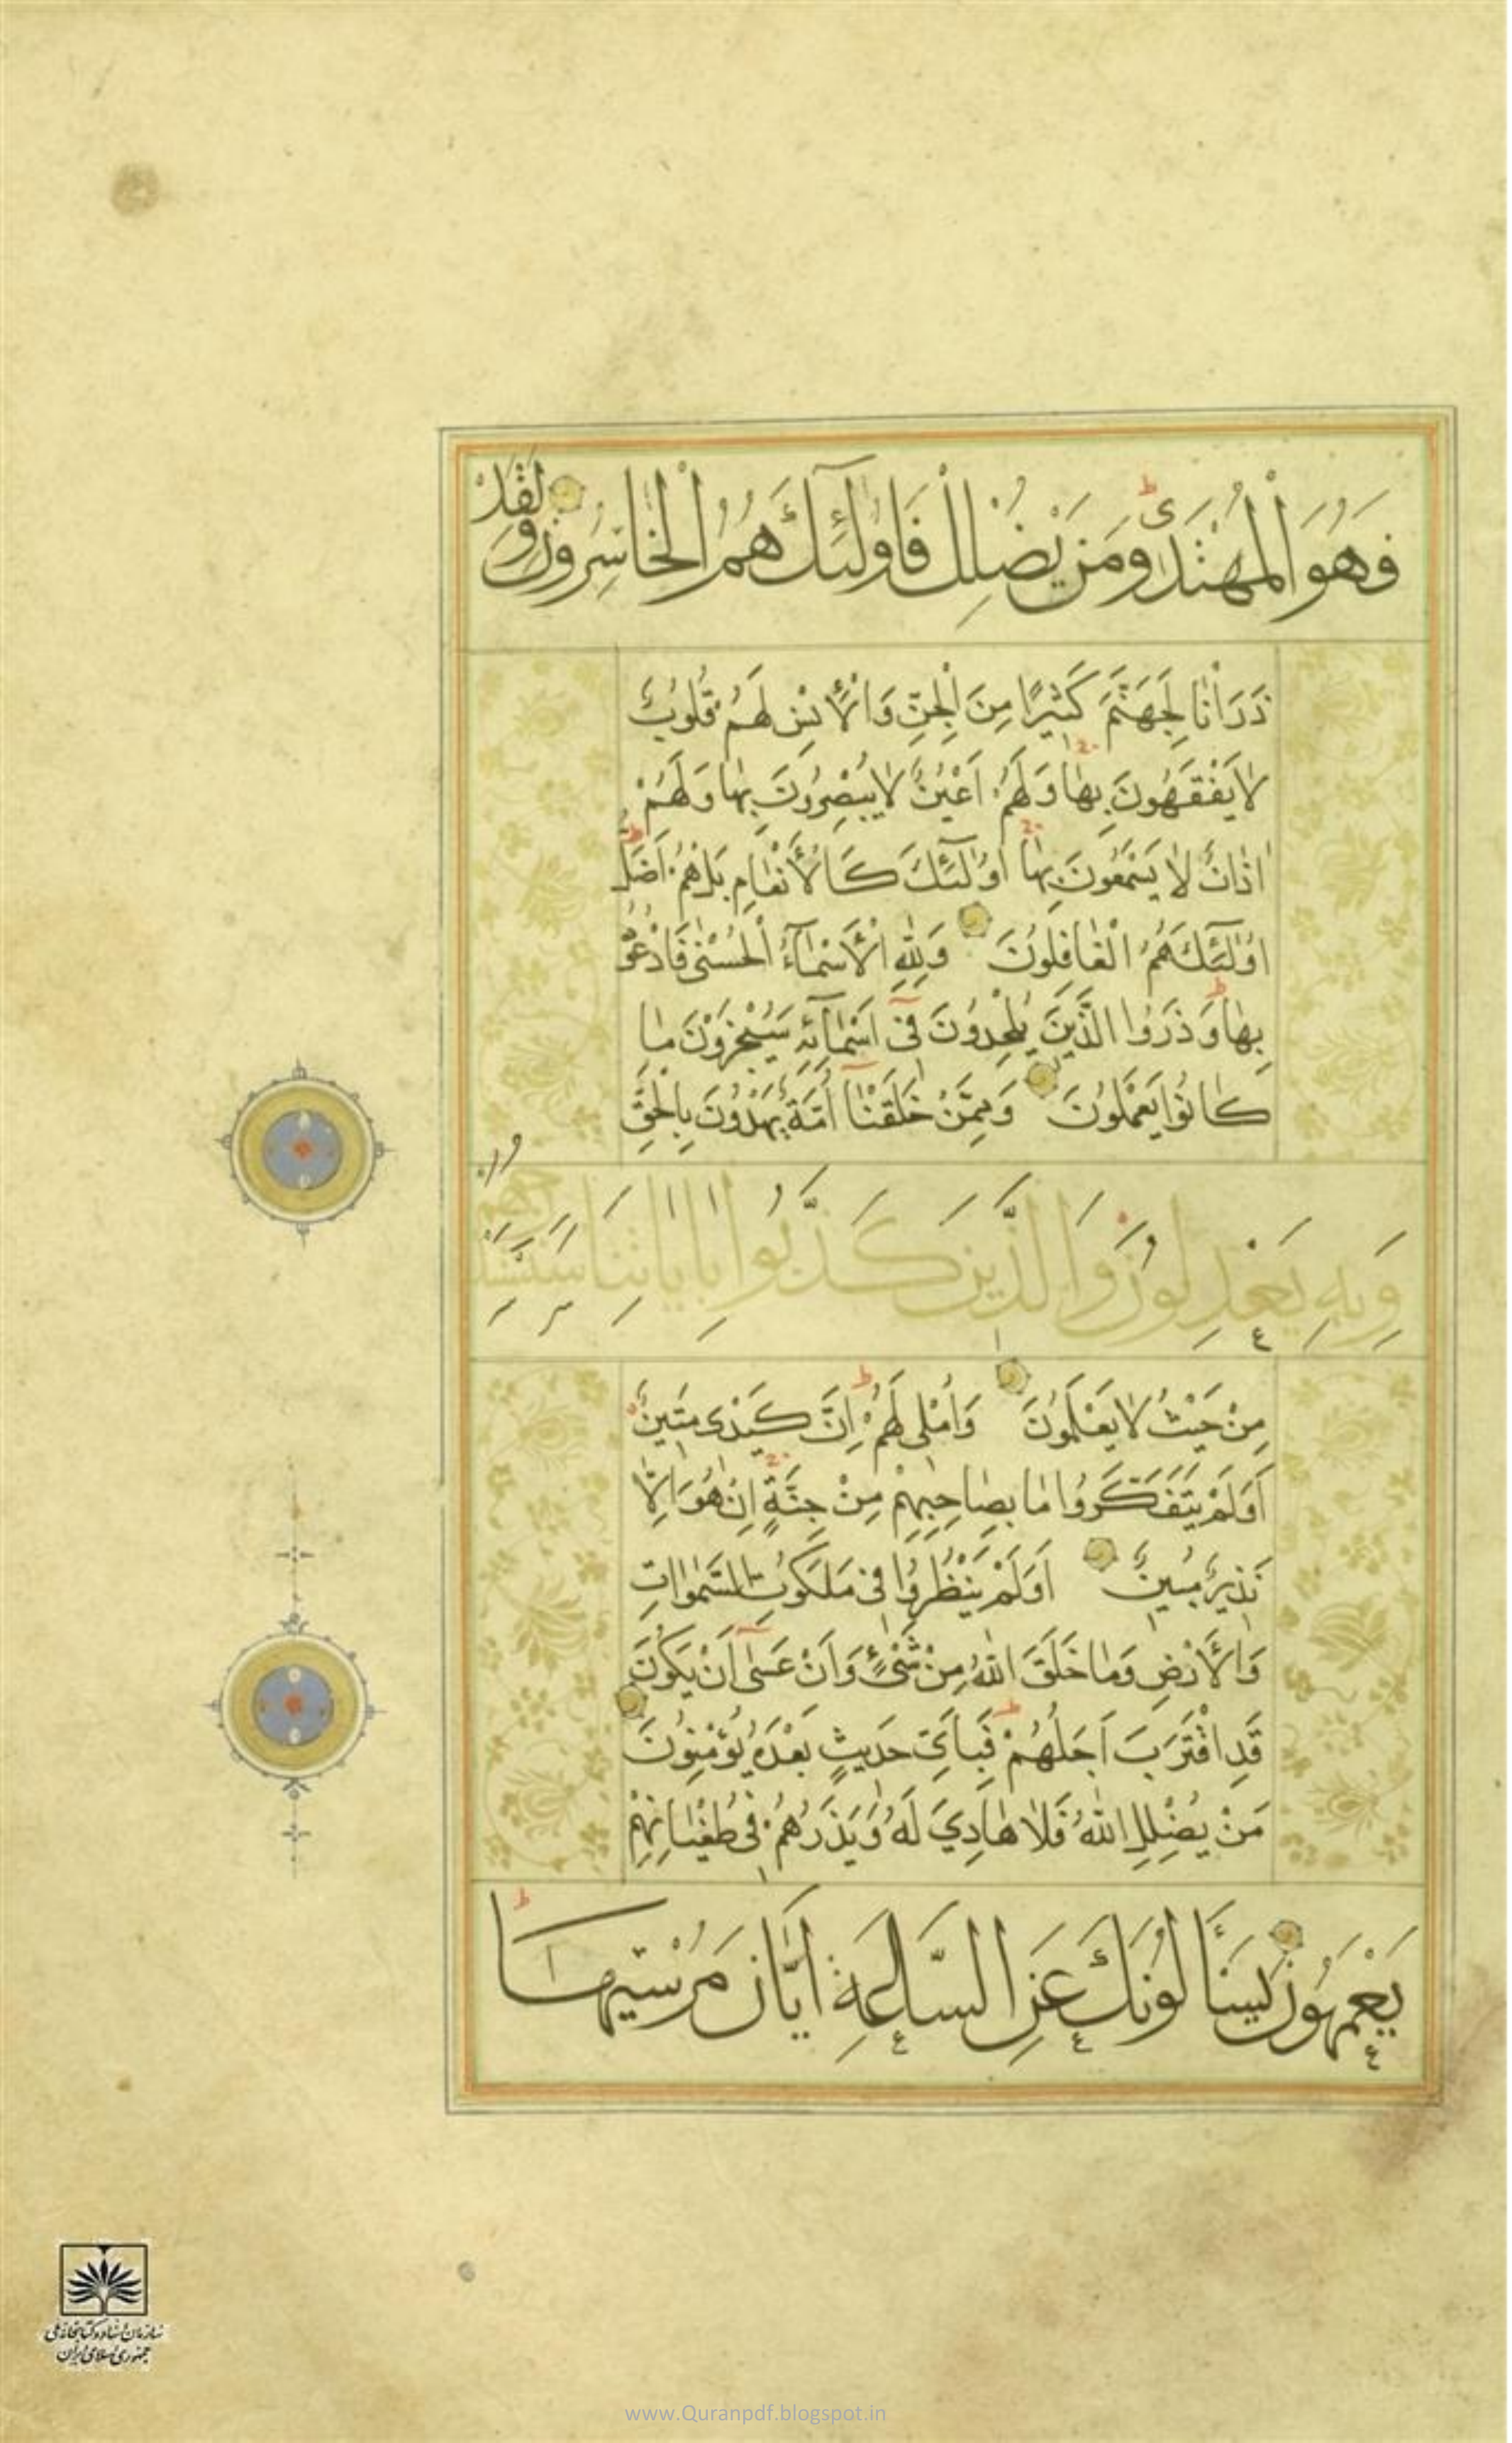 فَهُوَ الْمُهْتَدِی وَمَنْ يُضْلِلْ فَاُولٰئِكَ هُمُ الْخَاسِرُونَ وَلَقَدْ
ذَرَاْنَا لِجَهَنَّمَ كَثِيرًا مِنَ الْجِنِّ وَالْأِنْسِ لَهُمْ قُلُوبٌ
لَا يَفْقَهُونَ بِهَا وَلَهُمْ اَعْيُنٌ لَا يُبْصِرُونَ بِهَا وَلَهُمْ
اٰذَانٌ لَا يَسْمَعُونَ بِهَا اُولٰٓئِكَ كَالْأَنْعَامِ بَلْ هُمْ اَضَلُّ
اُولٰٓئِكَ هُمُ الْغَافِلُونَ وَلِلّٰهِ الْأَسْمَآءُ الْحُسْنٰى فَادْعُوهُ
بِهَا وَذَرُوا الَّذِينَ يُلْحِدُونَ فِىٓ اَسْمَآئِهِ سَيُجْزَوْنَ مَا
كَانُوا يَعْمَلُونَ وَمِمَّنْ خَلَقْنَآ اُمَّةٌ يَهْدُونَ بِالْحَقِّ
وَبِهِ يَعْدِلُونَ وَالَّذِينَ كَذَّبُوا بِاٰيَاتِنَا سَنَسْتَدْرِجُهُمْ
مِنْ حَيْثُ لَا يَعْلَمُونَ وَاُمْلِى لَهُمْ اِنَّ كَيْدِى مَتِينٌ
اَوَلَمْ يَتَفَكَّرُوا مَا بِصَاحِبِهِمْ مِنْ جِنَّةٍ اِنْ هُوَ اِلَّا
نَذِيرٌ مُبِينٌ اَوَلَمْ يَنْظُرُوا فِى مَلَكُوتِ السَّمٰوَاتِ
وَالْأَرْضِ وَمَا خَلَقَ اللّٰهُ مِنْ شَىْءٍ وَاَنْ عَسٰٓى اَنْ يَكُونَ
قَدِ اقْتَرَبَ اَجَلُهُمْ فَبِاَىِّ حَدِيثٍ بَعْدَهُ يُؤْمِنُونَ
مَنْ يُضْلِلِ اللّٰهُ فَلَا هَادِيَ لَهُ وَيَذَرُهُمْ فِى طُغْيَانِهِمْ
يَعْمَهُونَ يَسْأَلُونَكَ عَنِ السَّاعَةِ اَيَّانَ مُرْسٰيهَا
سازمان اسناد و کتابخانه ملی
جمهوری اسلامی ایران
www.Quranpdf.blogspot.in